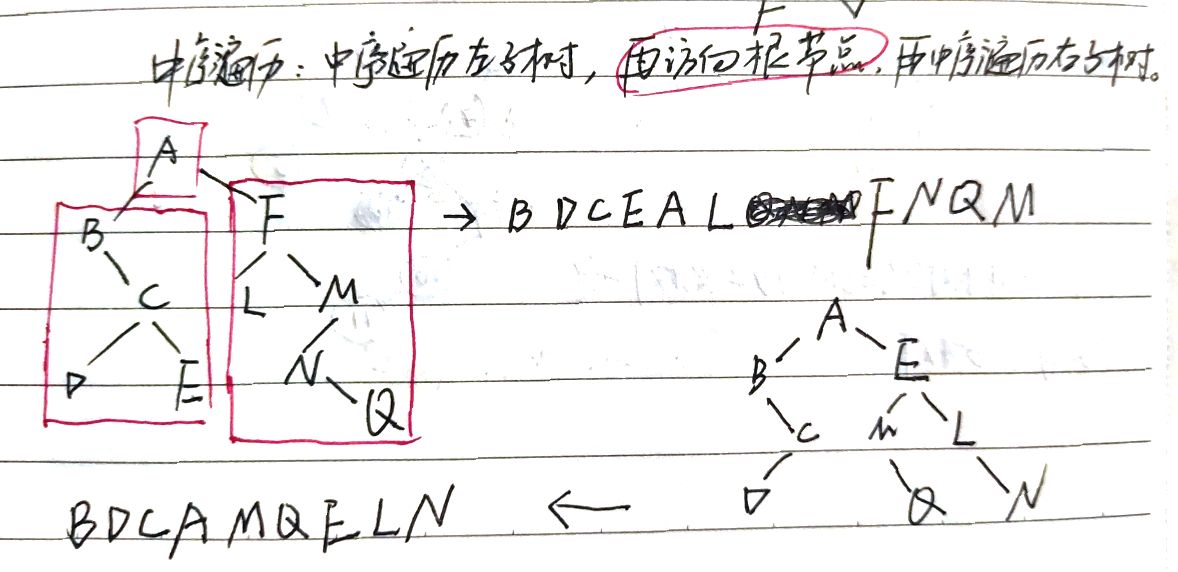 中序遍历：中序遍历左子树，再访问根节点，再中序遍历右子树。
A
B F → B D C E A L F N Q M
C L M
D E N Q
A
B E
C M L
D Q N
B D C A M Q E L N ←